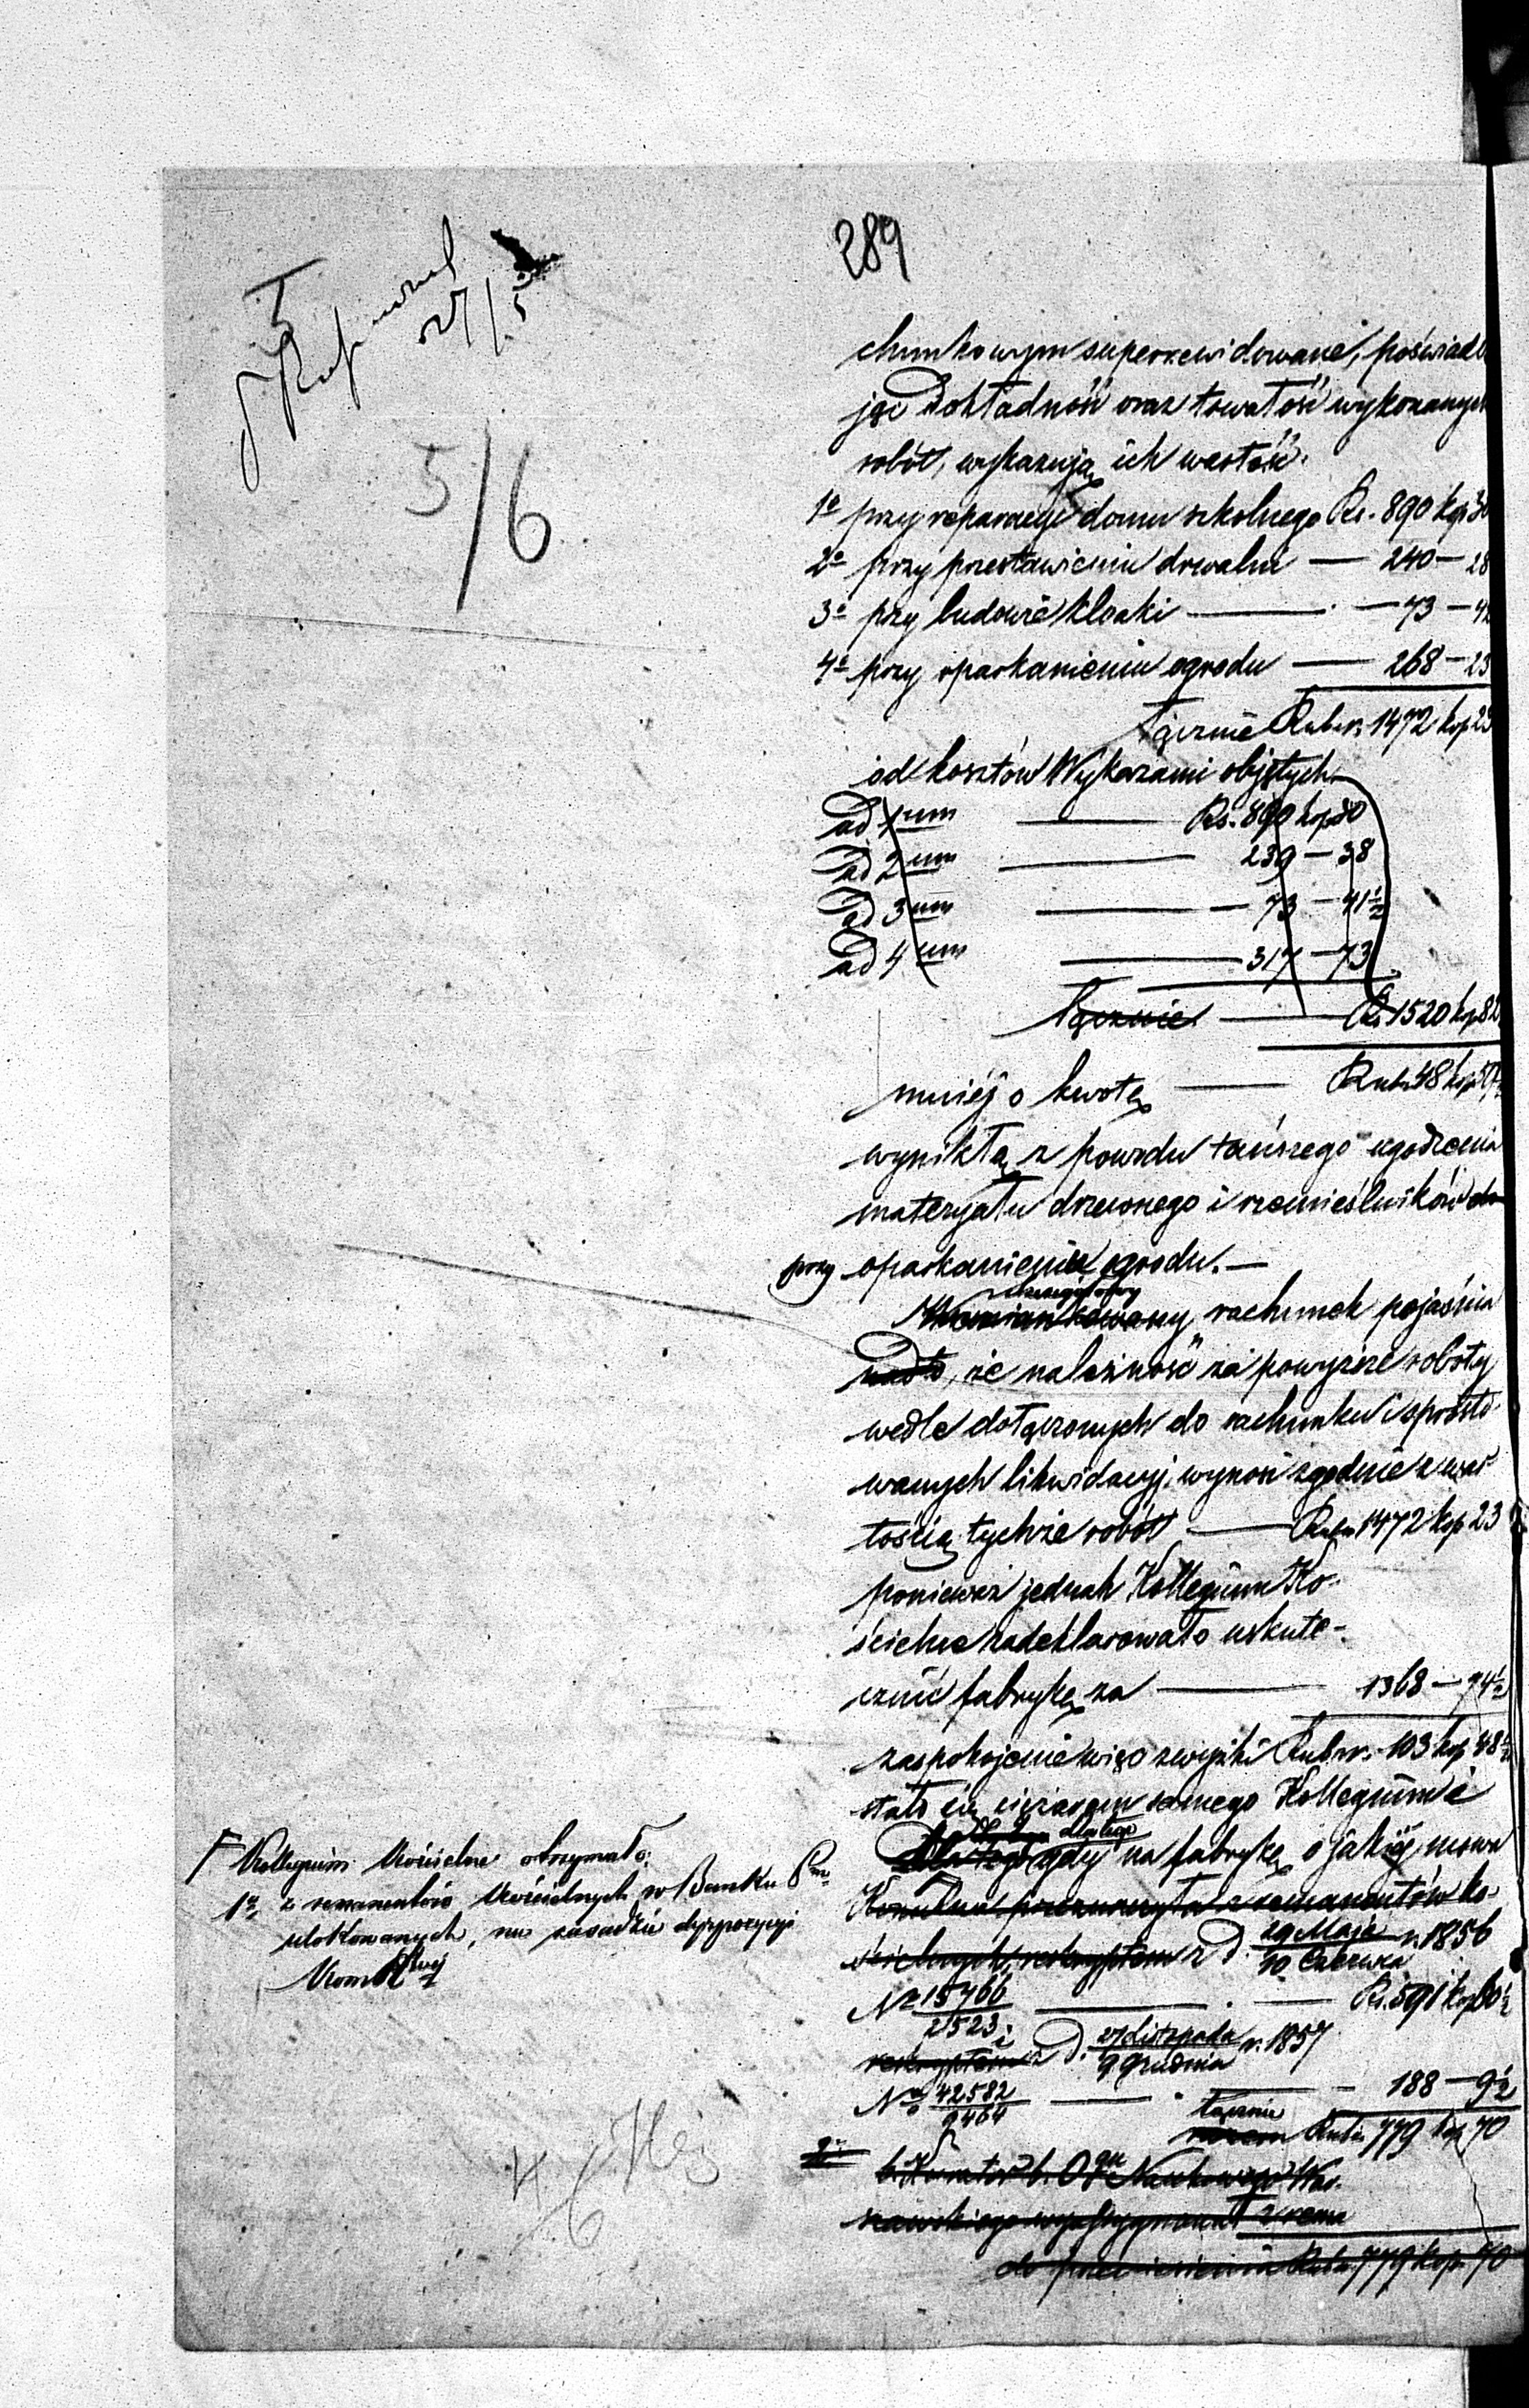 289
27/5
5/6
chunkowym superrewidowane, poświad
jąc Dokładność oraz trwałość wykonanych
robót, wykazują ich wartość.
1º przy reparacyi domu szkolnego Rs. 890 kop 30
2º przy przestawieniu drwalni — 240 — 28
3º przy budowie kloaki — 73 — 42
4º przy oparkanieniu ogrodu — 268 — 23
Łącznie Rubsr. 1472 kop 23
od kosztów Wykazami objętych
ad 1um — Rs. 890 kop 30
ad 2um — 239 — 38
ad 3um — 73 — 41½
ad 4um — 317 — 73
łącznie — Rs 1520 kop 82
mniéj o kwotę — Rubsr 48 kop 59½
wynikłą z powodu tańszego ugodzenia
materyału drzewnego i rzemieślników do
przy oparkanieniu ogrodu. —
szczegółowy
Wzmiankowany rachunek pojaśnia
nadto, że należność za powyższe roboty
wedle dołączonych do rachunku i sprosto-
wanych likwidacyj, wynosi zgodnie z war
tością tychże robót — Rubsr 1472 kop 23
ponieważ jednak Kollegium Ko-
ścielne zadeklarowało uskute-
cznić fabrykę za — 1368 — 74½
zaspokojenie więc zwyżki Rubsr. 103 kop 48½
stało się ciężarem samego Kollegium é
Dla tego gdy na fabrykę o jakiéj mowa
z remanentów ko-
ścielnych, reskryptem z D. 29 Maja/10 Czerwca r. 1856
Nº 15766/2523 — Rs. 591 kop 60½
i
reskryptem z D. 27 Listopada/9 Grudnia r. 1857
Nº 42582/9464 — 188 — 9½
łącznie
razem Rubsr 779 kop 70
2º
b. Kurator b. Ogu Naukowego War-
szawskiego z rema
do przeniesienia Rubsr. 779 kop. 70
F Kollegium Kościelne otrzymało:
1º z remanentów kościelnych w Banku Pm
ulokowanych, na zasadzie dyspozycyi
Kom Rwéj